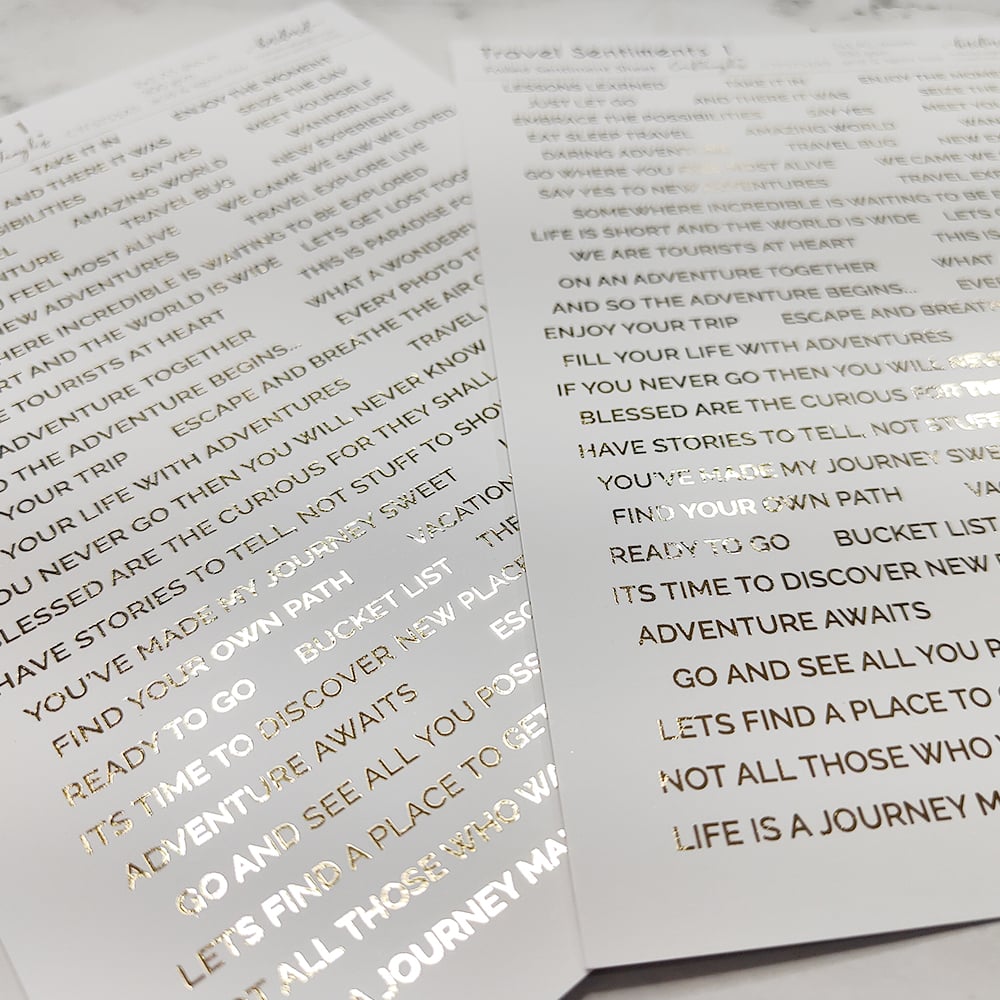 TAKE IT IN
ENJOY THE MOMENT
AND THERE IT WAS
SEIZE THE DAY
SIBILITIES
SAY YES
MEET YOURSELF
AMAZING WORLD
WANDERLUST
TRAVEL BUG
NEW EXPERIENCE
NTURE
WE CAME WE SAW WE LOVED
U FEEL MOST ALIVE
TRAVEL EXPLORE LIVE
NEW ADVENTURES
HERE INCREDIBLE IS WAITING TO BE EXPLORED
RT AND THE WORLD IS WIDE
LETS GET LOST TOG
E TOURISTS AT HEART
THIS IS PARADISE FO
ADVENTURE TOGETHER
WHAT A WONDERFU
O THE ADVENTURE BEGINS...
EVERY PHOTO T
YOUR TRIP
ESCAPE AND BREATHE THE AIR O
YOUR LIFE WITH ADVENTURES
TRAVEL
OU NEVER GO THEN YOU WILL NEVER KNOW
BLESSED ARE THE CURIOUS FOR THEY SHALL
HAVE STORIES TO TELL, NOT STUFF TO SHO
YOU'VE MADE MY JOURNEY SWEET
VACATION
FIND YOUR OWN PATH
THE
READY TO GO
BUCKET LIST
IT'S TIME TO DISCOVER NEW PLACE
ADVENTURE AWAITS
ESC
GO AND SEE ALL YOU POSS
LET'S FIND A PLACE TO GET
T ALL THOSE WHO WA
A JOURNEY MA
Travel Sentiments 1
Foiled Sentiment Sheet
LESSONS LEARNED
TAKE IT IN
ENJOY THE MOME
JUST LET GO
AND THERE IT WAS
SEIZE T
EMBRACE THE POSSIBILITIES
SAY YES
MEET YOU
EAT SLEEP TRAVEL
AMAZING WORLD
WAN
DARING ADVENTURE
TRAVEL BUG
NEW E
GO WHERE YOU FEEL MOST ALIVE
WE CAME WE
SAY YES TO NEW ADVENTURES
TRAVEL EX
SOMEWHERE INCREDIBLE IS WAITING TO BE
LIFE IS SHORT AND THE WORLD IS WIDE
LETS G
WE ARE TOURISTS AT HEART
THIS IS
ON AN ADVENTURE TOGETHER
WHAT
AND SO THE ADVENTURE BEGINS...
EVE
ENJOY YOUR TRIP
ESCAPE AND BREAT
FILL YOUR LIFE WITH ADVENTURES
IF YOU NEVER GO THEN YOU WILL NEVE
BLESSED ARE THE CURIOUS FOR THE
HAVE STORIES TO TELL, NOT STUFF
YOU'VE MADE MY JOURNEY SWE
FIND YOUR OWN PATH
VAC
READY TO GO
BUCKET LIST
ITS TIME TO DISCOVER NEW P
ADVENTURE AWAITS
GO AND SEE ALL YOU P
LETS FIND A PLACE TO
NOT ALL THOSE WHO W
LIFE IS A JOURNEY M